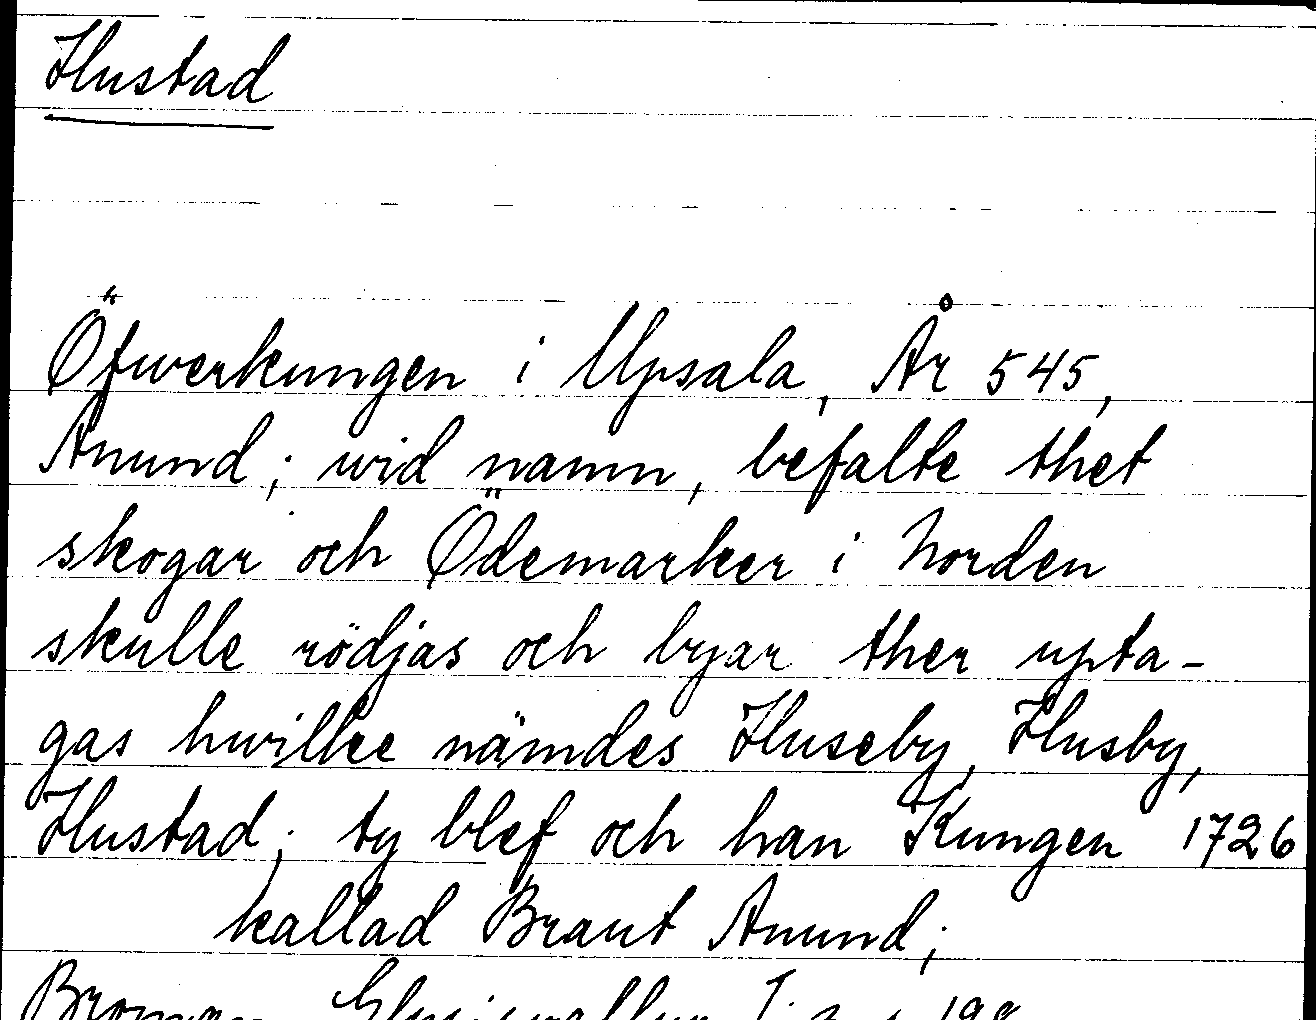 Hustad
Öfwerkungen i Upsala, År 545,
Anund; wid namn, befalte thet
skogar och Ödemarker i Norden
skulle rödjas och byar ther upta-
gas hwilke nämdes Huseby, Husby,
Hustad; ty blef och han Kungen 1726
kallad Braut Anund;
Broman Glysisvallur I. s. 198